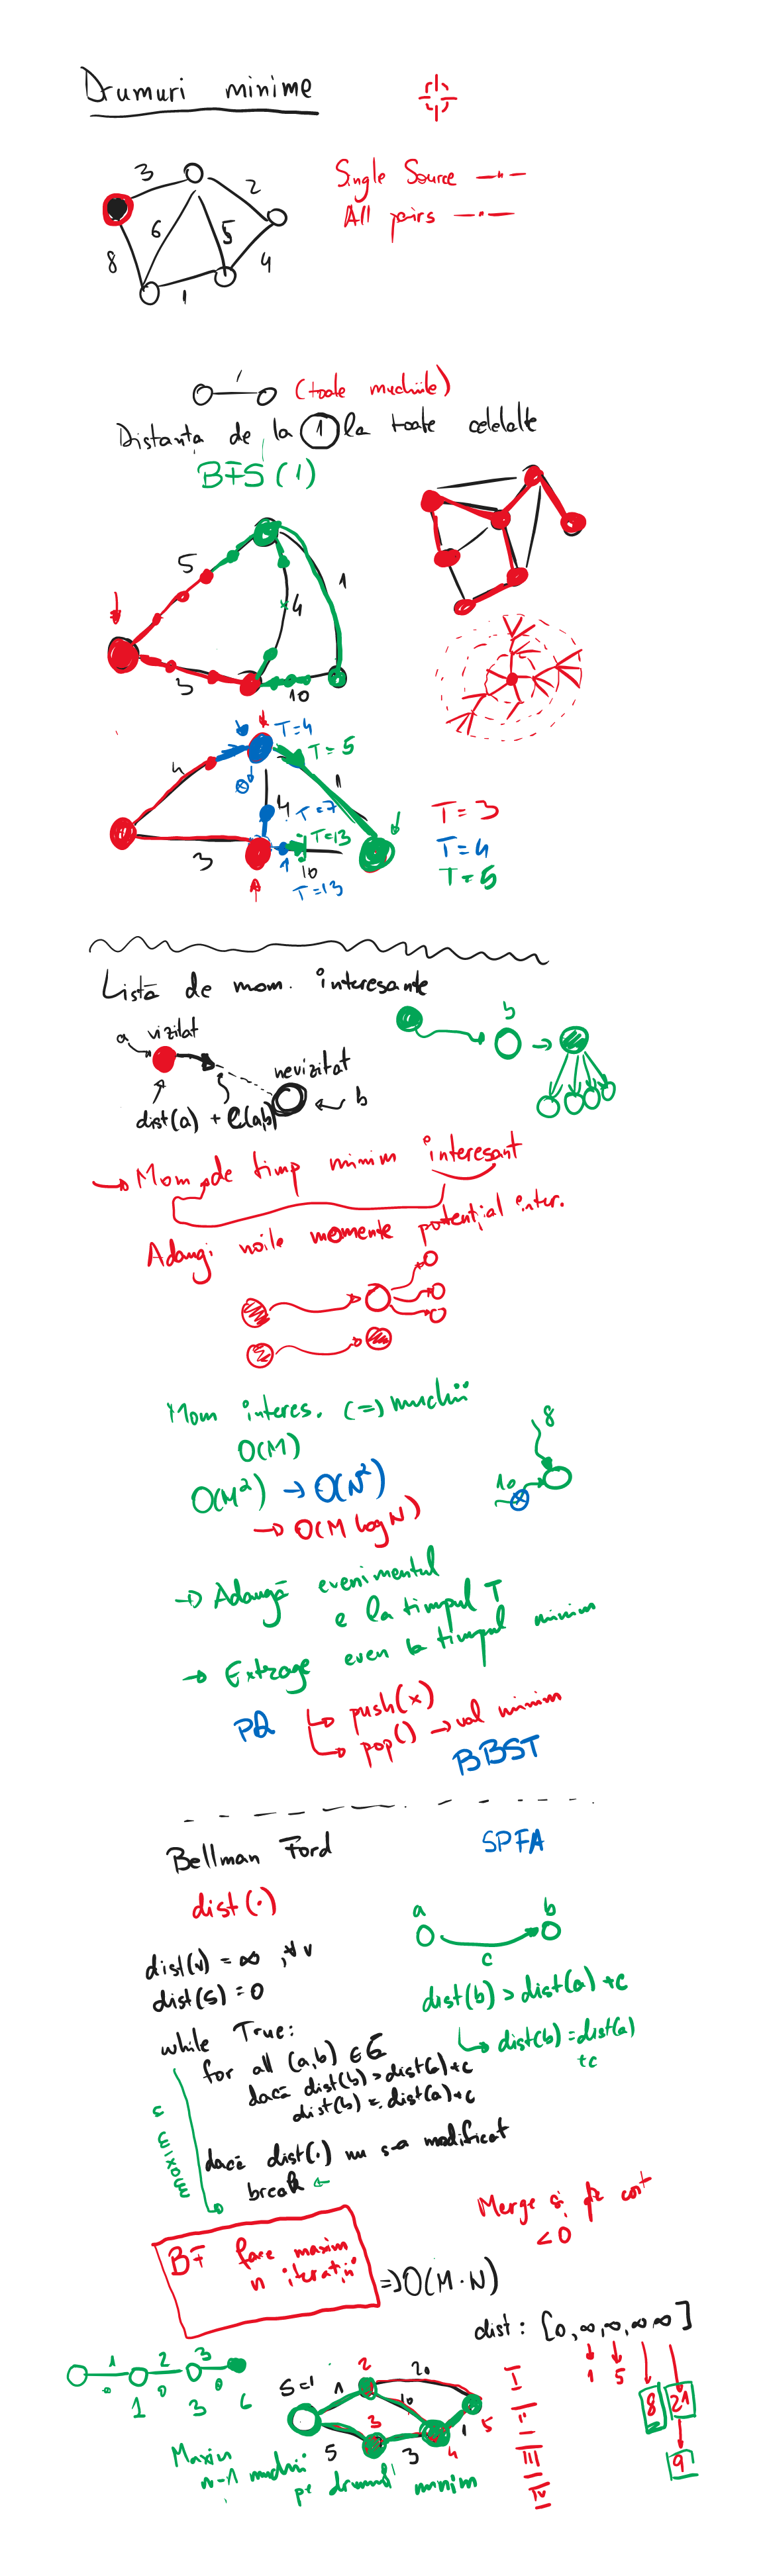 Drumuri minime
Single Source
All pairs
3
2
6
5
8
4
1
1
(toate muchiile)
Distanța de la 1 la toate celelalte
BFS(1)
5
4
1
3
10
T=4
T=5
4
1
4
T=7
T=13
3
1
10
T=13
T=3
T=4
T=5
Listă de mom. interesante
a vizitat
nevizitat
b
dist(a) + l(a,b)
b
→ Mom de timp minim interesant
Adaugi noile momente potențial inter.
Mom interes. (=) muchii
O(M)
O(M²) → O(N²)
→ O(M log N)
8
10
→ Adaugă evenimentul
e la timpul T
→ Extrage even la timpul minim
PQ
push(x)
pop() → val minim
BBST
Bellman Ford
SPFA
dist(·)
a
b
c
dist(v) = ∞, ∀ v
dist(s) = 0
dist(b) > dist(a) + c
dist(b) = dist(a)
+c
while True:
for all (a,b) ∈ E
dacă dist(b) > dist(a) + c
dist(b) = dist(a) + c
dacă dist(·) nu s-a modificat
break
maxim n
Merge și pe cost
< 0
BF face maxim
n iterații
=> O(M·N)
dist: [0, ∞, ∞, ∞, ∞]
1 5 8 21
9
1 2 3
∞ ∞ ∞
1 3 6
S=1
1
2
20
10
3
5
3
4
1
5
I
II
III
IV
Maxim
n-1 muchii
pe drumul minim